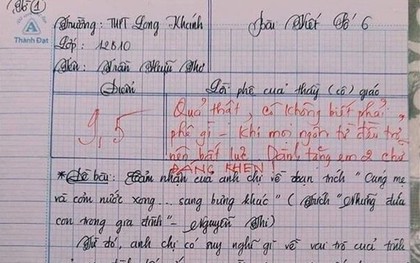 Tờ 1
A
Thành Đạt
Trường: THPT Long Khánh
Bài Viết Số 6
Lớp: 12B10
Tên: Trần Huỳnh Như
Điểm
Lời phê của thầy (cô) giáo
9,5
Quả thật, cô không biết phải
phê gì - Khi mọi ngôn từ đều trở
nên bất lực. Dành tặng em 2 chữ
ĐÁNG KHEN
*Đề bài: Cảm nhận của anh chị về đoạn trích "Cúng mẹ
và cơm nước xong... sang bưng khác" (Trích "Những đứa
con trong gia đình" - Nguyễn Thi)
Từ đó, anh chị có suy nghĩ gì về vai trò của tình